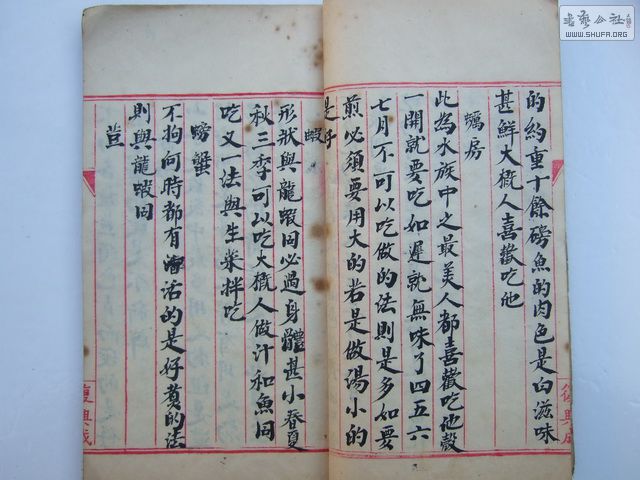 的約重十餘磅魚的肉色是白滋味
甚鮮大概人喜歡吃他
蠣房
此為水族中之最美人都喜歡吃他殼
一開就要吃如遲就無味了四五六
七月不可以吃做的法則是多如要
煎必須要用大的若是做湯小的
是好
蝦
形狀與龍蝦同必過身體甚小春夏
秋三季可以吃大概人做汁和魚同
吃又一法與生菜拌吃
螃蟹
不拘何時都有活的是好煮的法
則與龍蝦同
荳
復興成
復興成
書藝公社
WWW.SHUFA.ORG